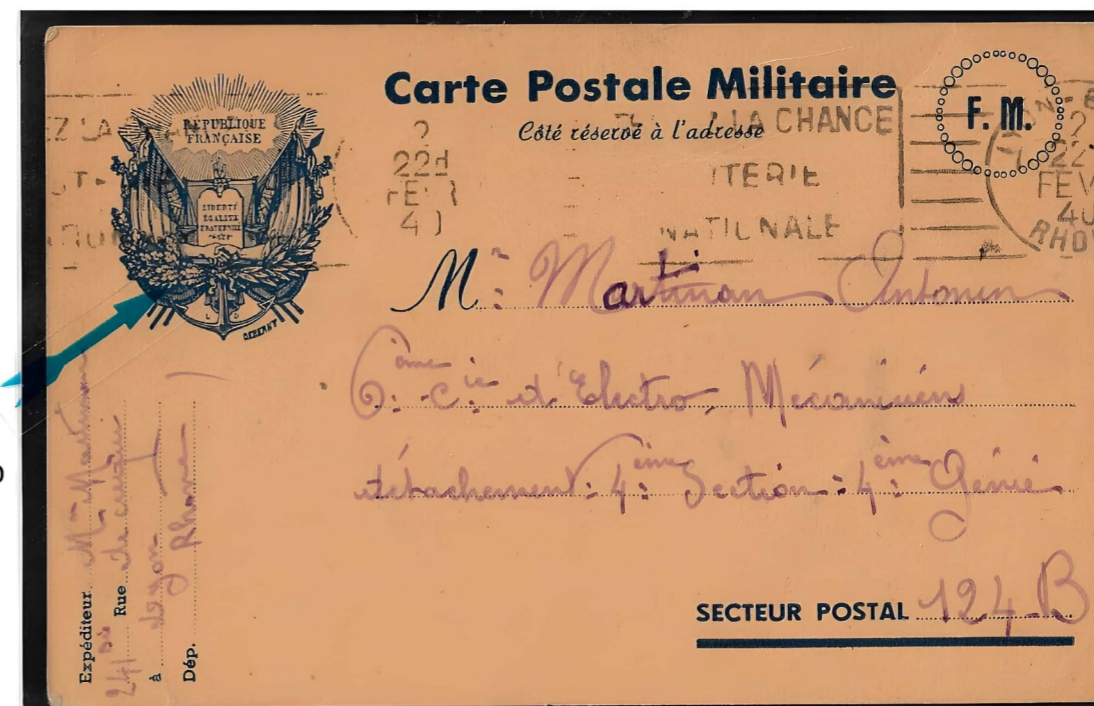 Carte Postale Militaire
Côté réservé à l'adresse
F. M.
RÉPUBLIQUE
FRANÇAISE
LIBERTÉ
ÉGALITÉ
FRATERNITÉ
LA CHANCE
NATIONALE
22
FEV
40
RHO
DEBERNY
Mr Martinan Antonin
6ème Cie d'Electro, Mécaniciens
détachement: 4ème Section: 4ème Génie
SECTEUR POSTAL 124 B
Expéditeur Mme
241 bis Rue de
à Lyon
Dép. Rhone